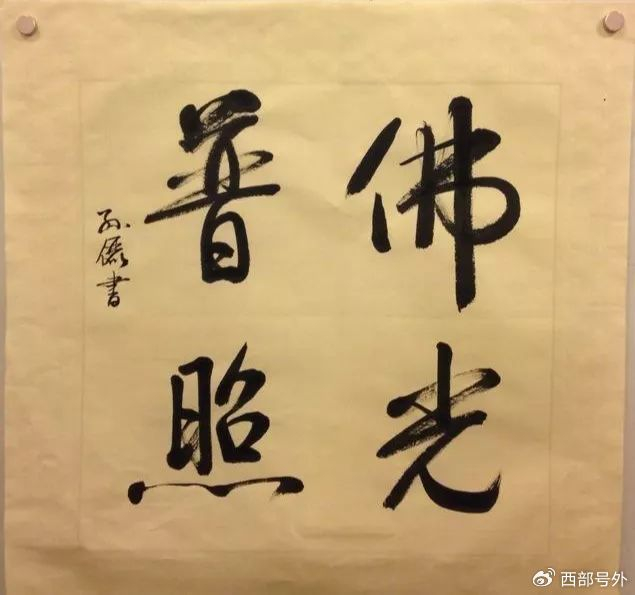 佛光
普照
孙儒书
西部号外